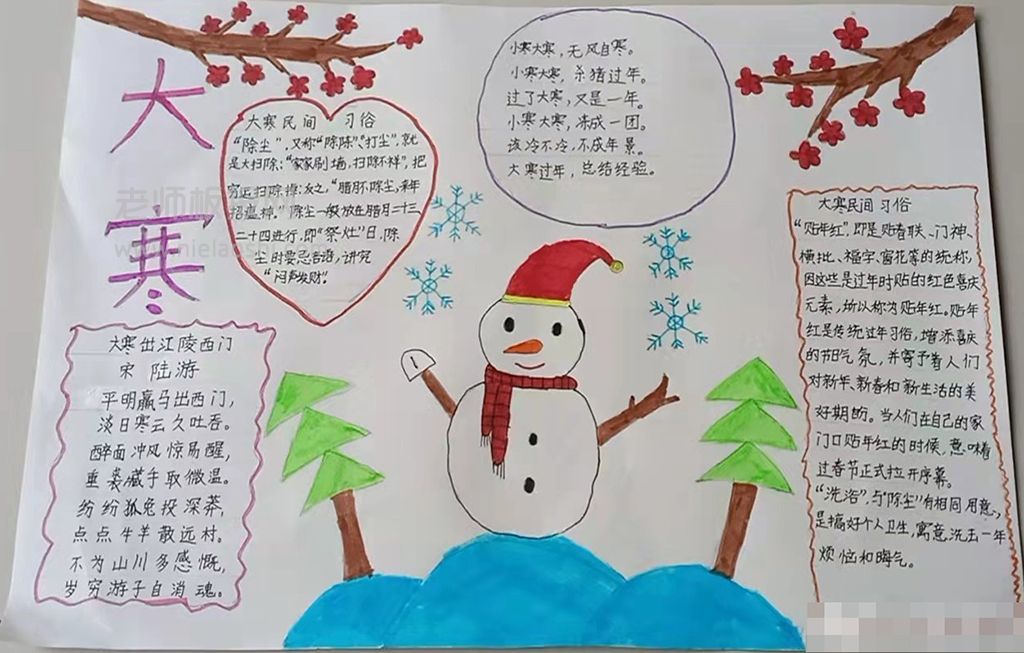 大寒
大寒民间 习俗
“除尘”，又称“除陈”、“打尘”，就
是大扫除；“家家刷墙，扫除不祥”，把
穷运扫除掉；反之，“腊月不除尘，来年
招瘟神。”除尘一般放在腊月二十三、
二十四进行，即“祭灶”日，除
尘时要忌言语，讲究
“闷声发财”。
小寒大寒，无风自寒。
小寒大寒，杀猪过年。
过了大寒，又是一年。
小寒大寒，冻成一团。
该冷不冷，不成年景。
大寒过年，总结经验。
大寒出江陵西门
宋 陆游
平明羸马出西门，
淡日寒云久吐吞。
醉面冲风惊易醒，
重裘藏手取微温。
纷纷狐兔投深莽，
点点牛羊散远村。
不为山川多感慨，
岁穷游子自消魂。
大寒民间 习俗
“贴年红”，即是贴春联、门神、
横批、福字、窗花等的统称，
因这些是过年时贴的红色喜庆
元素，所以称为贴年红。贴年
红是传统过年习俗，增添喜庆
的节日气氛，并寄予着人们
对新年、新春和新生活的美
好期盼。当人们在自己的家
门口贴年红的时候，意味着
过春节正式拉开序幕。
“洗浴”，与“除尘”有相同用意，
是搞好个人卫生，寓意洗去一年
烦恼和晦气。